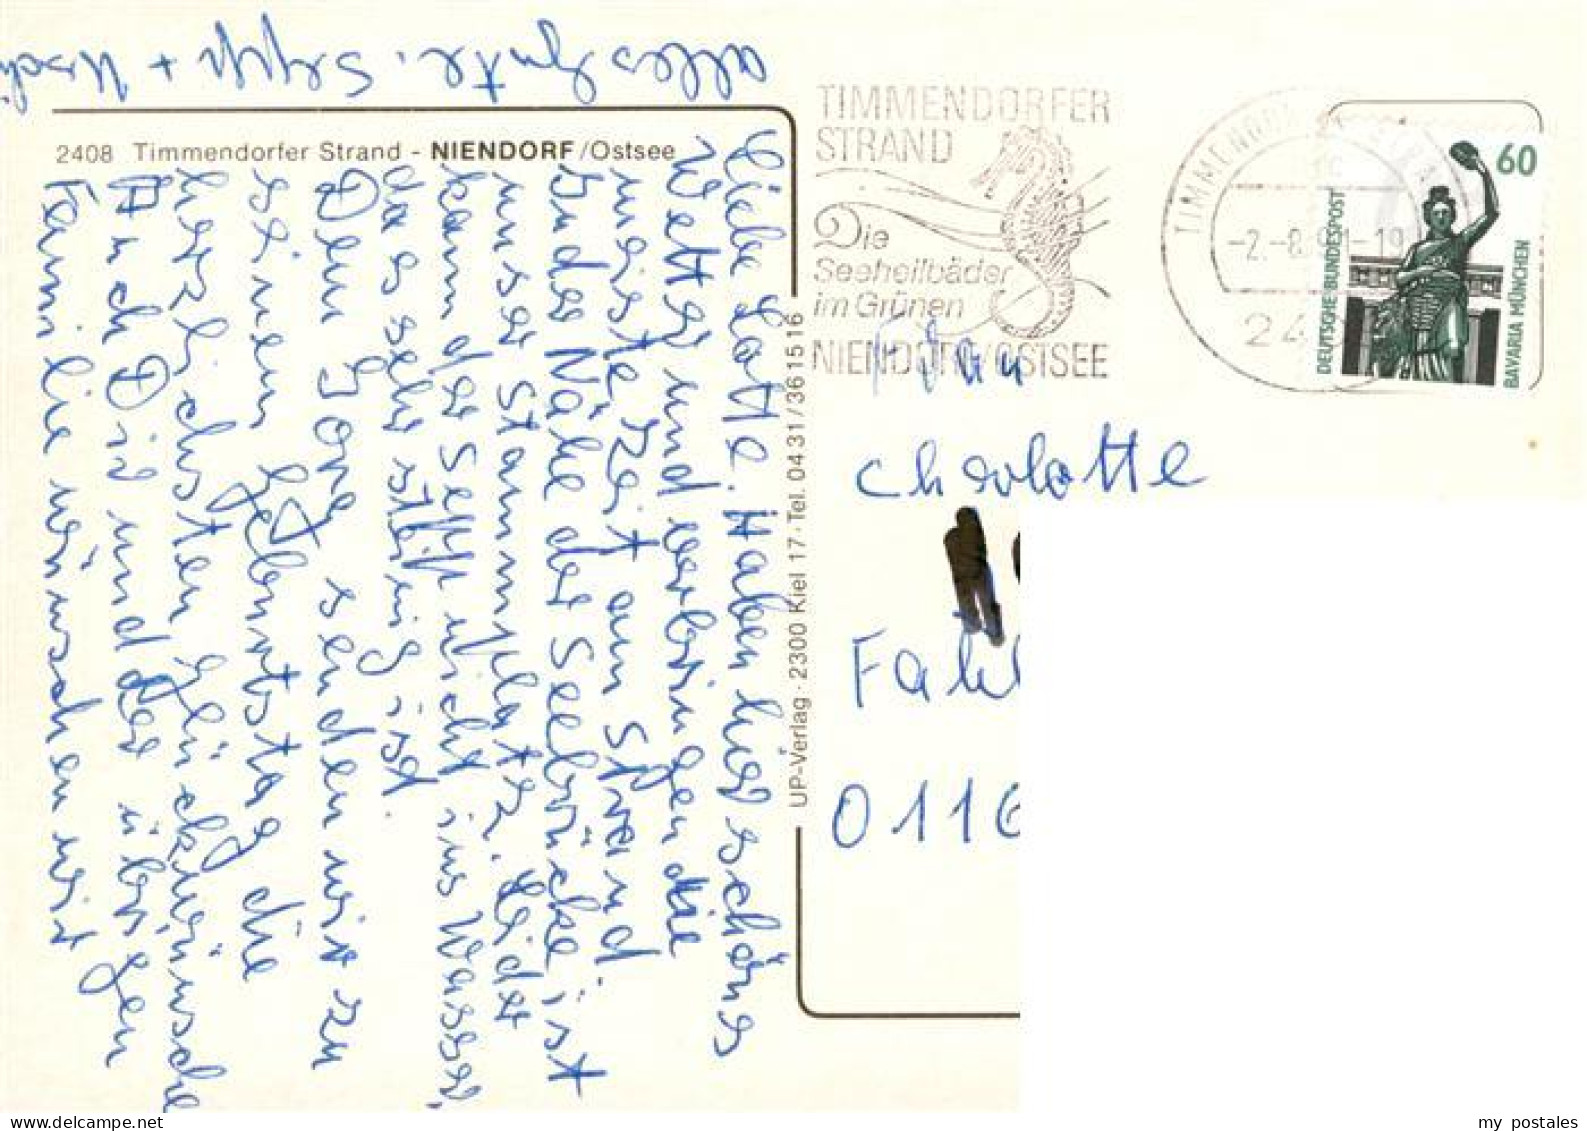 2408 Timmendorfer Strand - NIENDORF/Ostsee
Liebe Lotte. Haben hier schönes
Wetter und verbringen die
meiste Zeit am Strand.
In der Nähe der Seebrücke ist
unser Stammplatz. Leider
kann der Sepp nicht ins Wasser,
da es sehr steinig ist.
Dem Jörg senden wir zu
seinem Geburtstag die
herzlichsten Glückwünsche
Auch Dir und der übrigen
Familie wünschen wir
alles Gute. Sepp + Uschi
UP-Verlag · 2300 Kiel 17 · Tel. 0431/361516
TIMMENDORFER
STRAND
Die
Seeheilbäder
im Grünen
NIENDORF/OSTSEE
TIMMENDORFER STRAND
-2.-8.91-19
24
60
DEUTSCHE BUNDESPOST
BAVARIA MÜNCHEN
Frau
Charlotte
0116
my postales